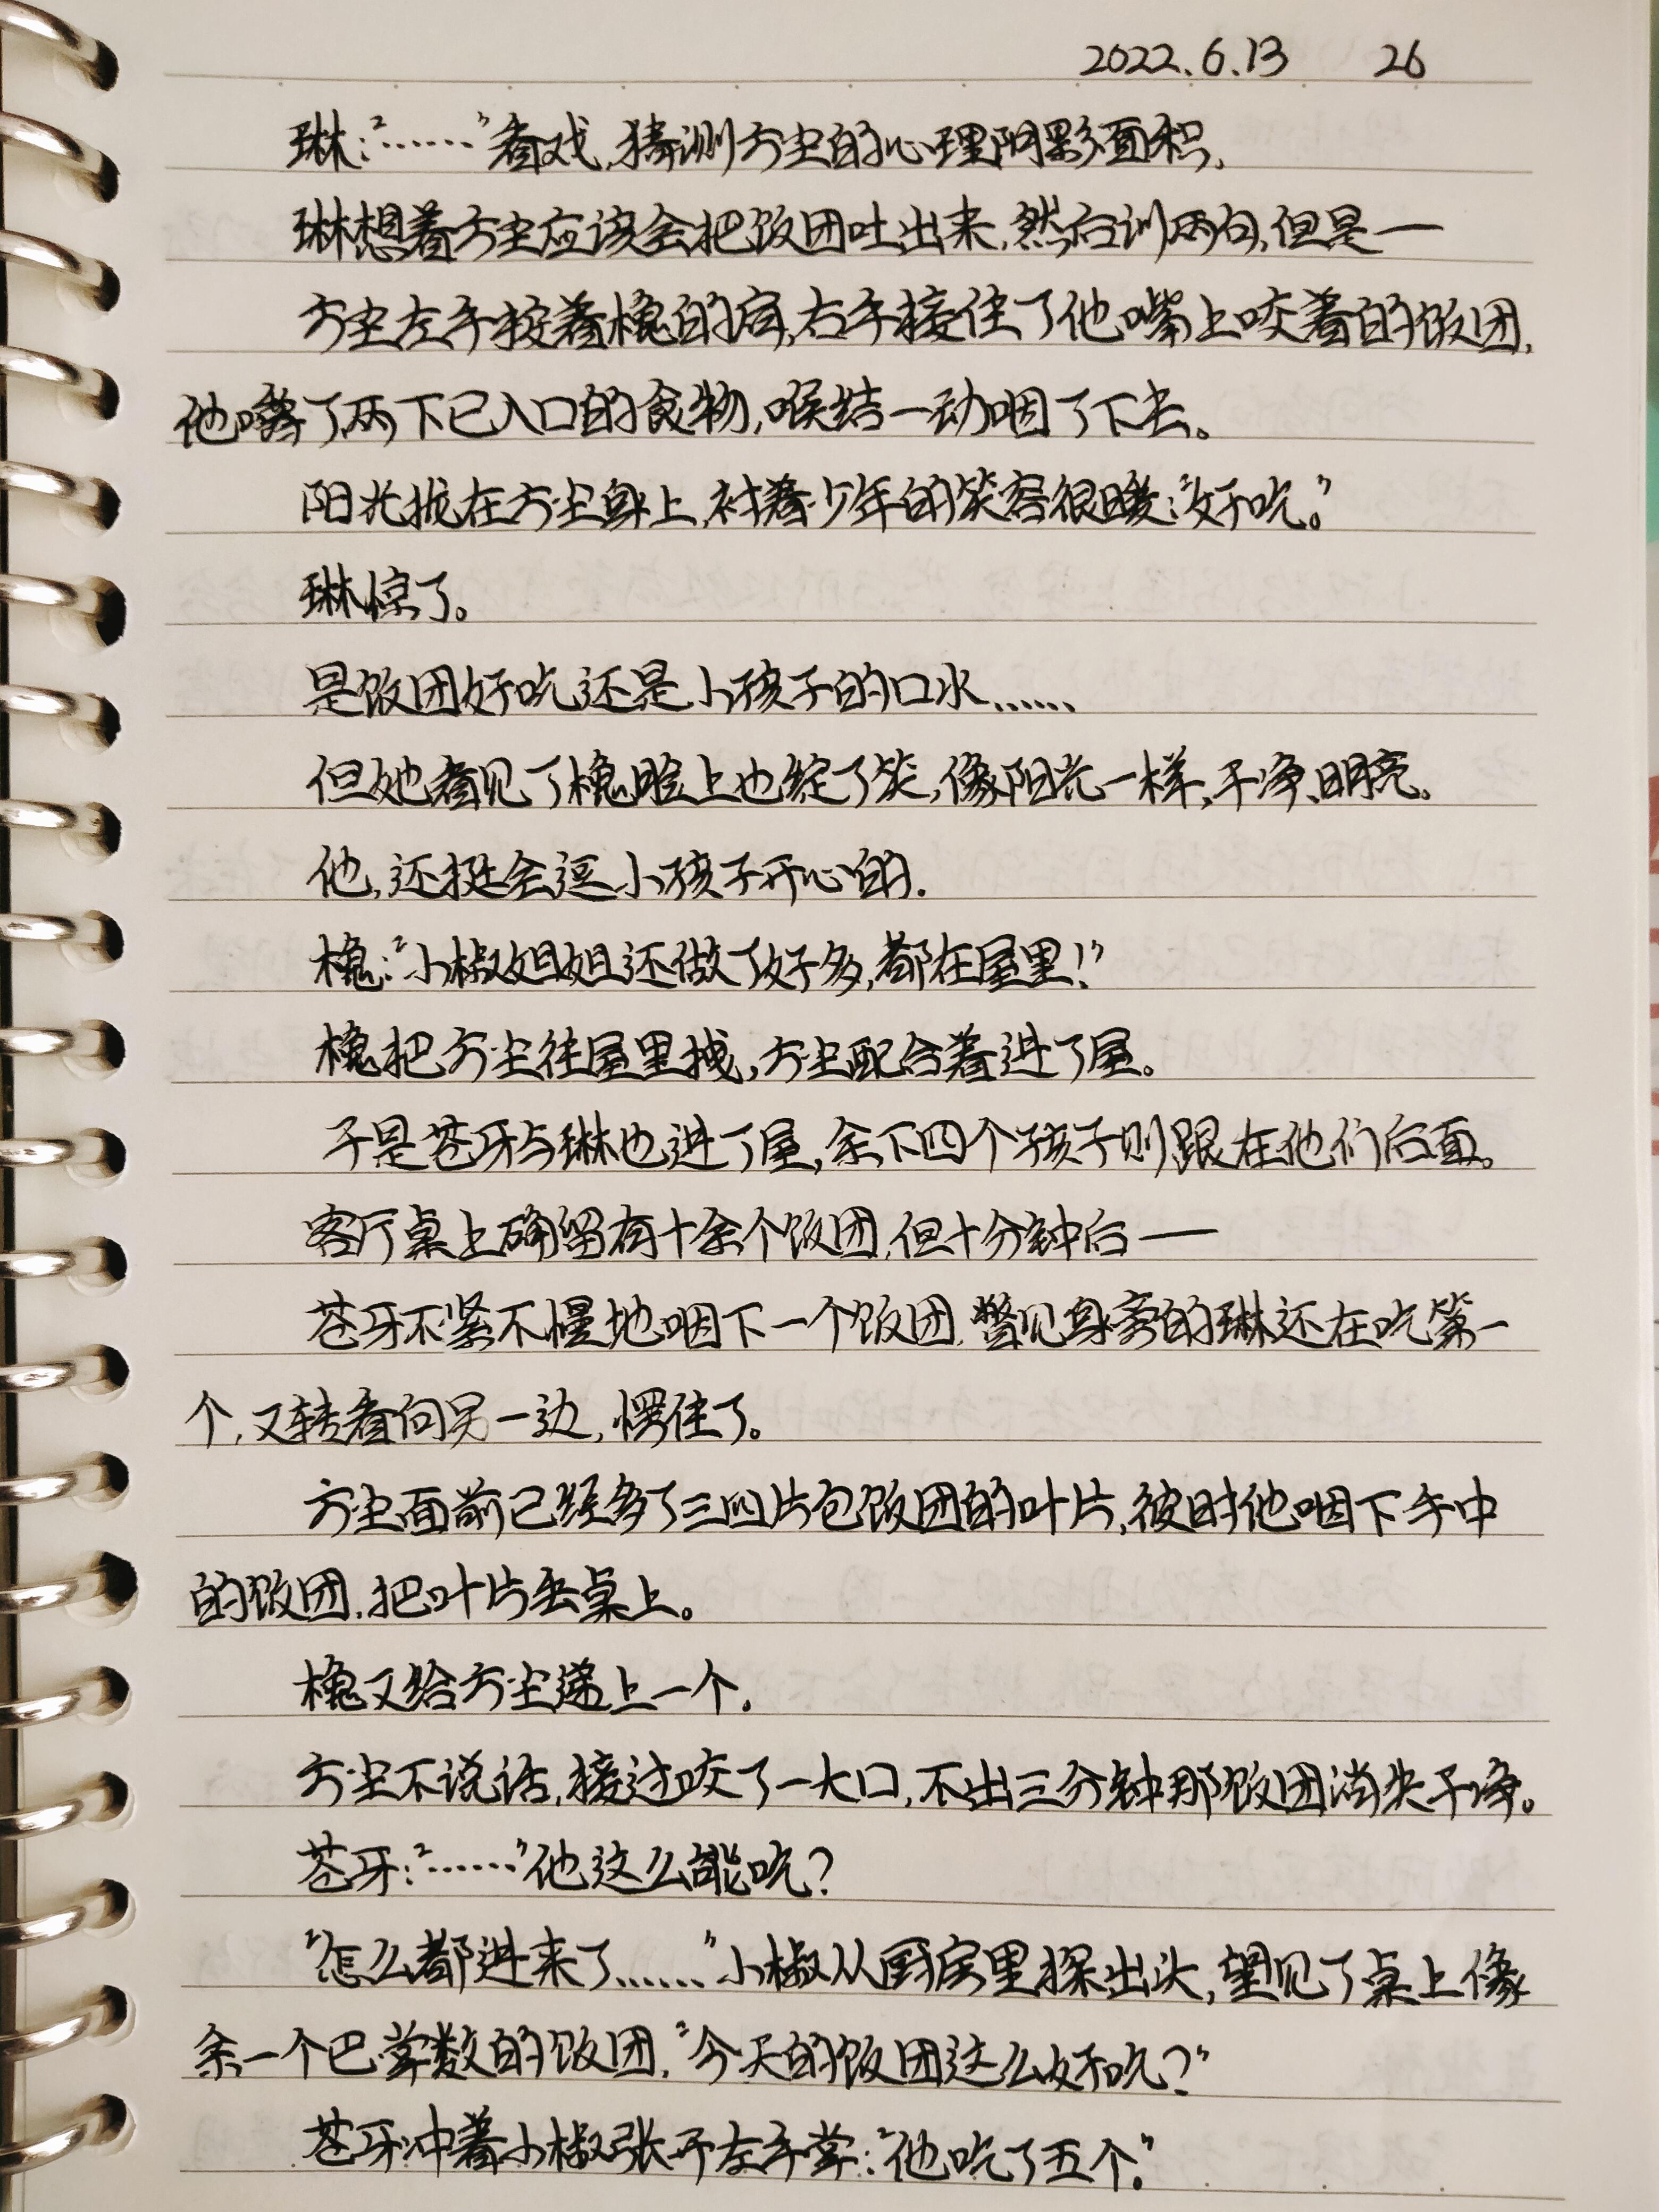 2022.6.13 26
琳:“……”看戏,猜测方尘的心理阴影面积.
琳想着方尘应该会把饭团吐出来,然后训两句,但是一
方尘左手按着槐的肩,右手接住了他嘴上咬着的饭团.
他嚼了两下已入口的食物,喉结一动咽了下去。
阳光拢在方尘身上,衬着少年的笑容很暖:“好吃。”
琳惊了。
是饭团好吃还是小孩子的口水……
但她看见了槐脸上也绽了笑,像阳光一样,干净、明亮。
他,还挺会逗小孩子开心的.
槐:“小椒姐姐还做了好多,都在屋里!”
槐把方尘往屋里拽,方尘配合着进了屋。
于是苍牙与琳也进了屋,余下四个孩子则跟在他们后面。
客厅桌上确留有十余个饭团,但十分钟后——
苍牙不紧不慢地咽下一个饭团.瞥见身旁的琳还在吃第一
个,又转看向另一边,愣住了。
方尘面前已经多了三四片包饭团的叶片,彼时他咽下手中
的饭团.把叶片丢桌上。
槐又给方尘递上一个.
方尘不说话,接过咬了一大口,不出三分钟那饭团消失干净。
苍牙:“……”他这么能吃?
“怎么都进来了……”小椒从厨房里探出头,望见了桌上像
余一个巴掌数的饭团.“今天的饭团这么好吃?”
苍牙冲着小椒张开左手掌:“他吃了五个.”